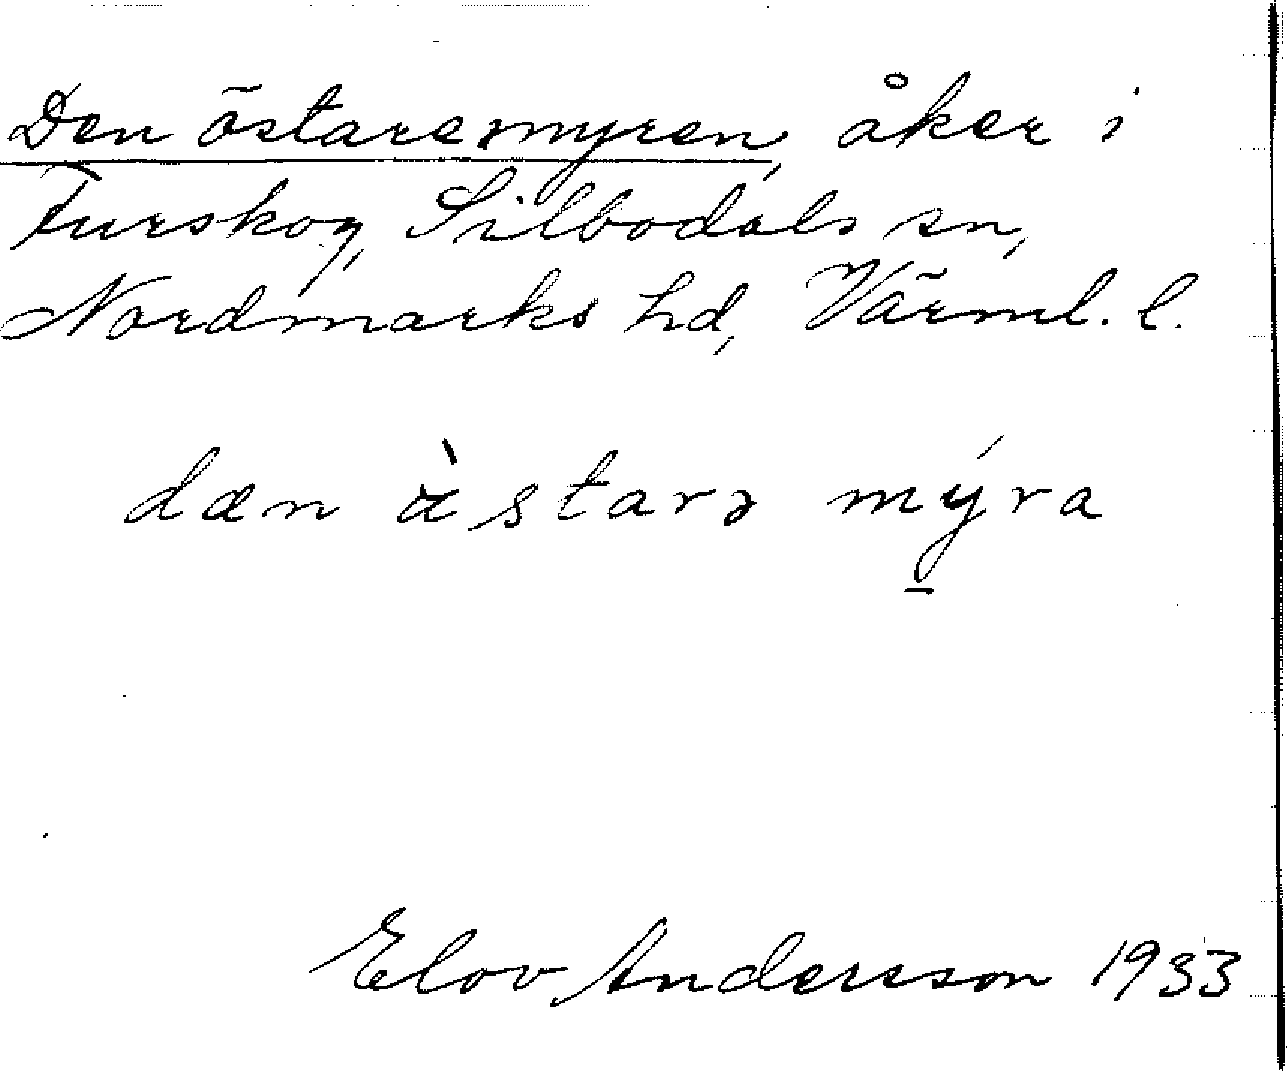 Den östaremyren, åker i
Furskog, Silbodals sn,
Nordmarks hd, Värml. l.
dæn starə mýra
Elov Andersson 1933